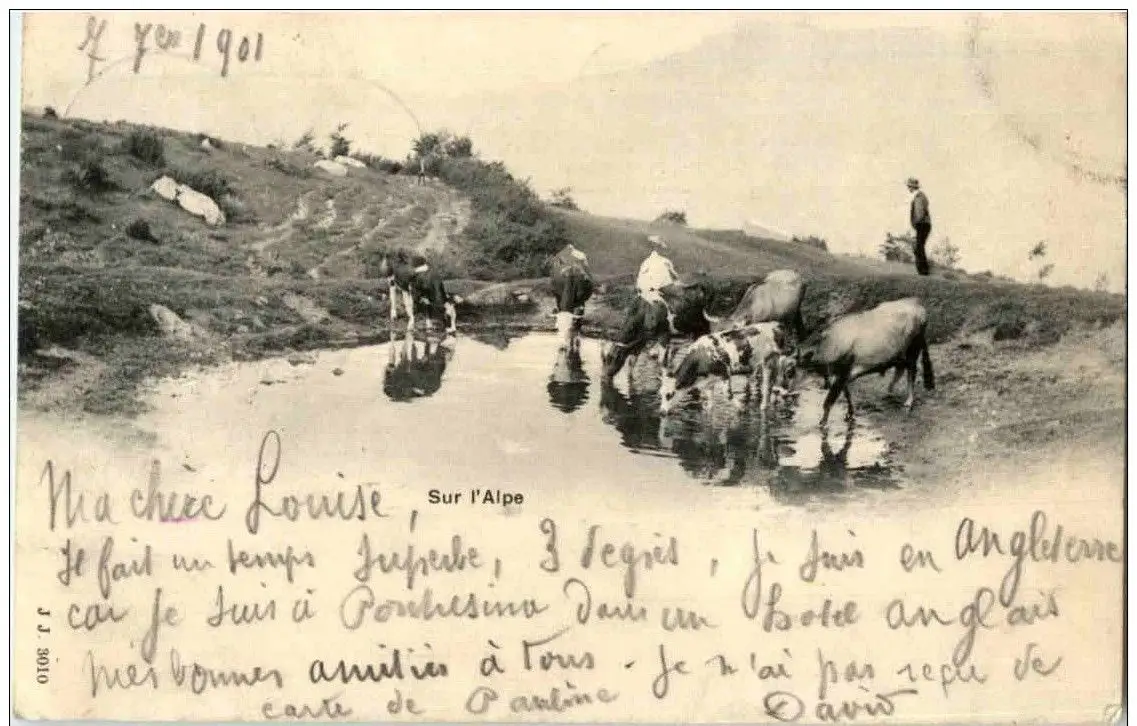 7 7re 1901
Ma chere Louise,
Sur l'Alpe
Il fait un temps superbe, 3 degrés, je suis en Angleterre
car je suis à Pontresina dans un hotel anglais
mes bonnes amitiés à tous. Je n'ai pas reçu de
carte de Pauline David
J J. 3010